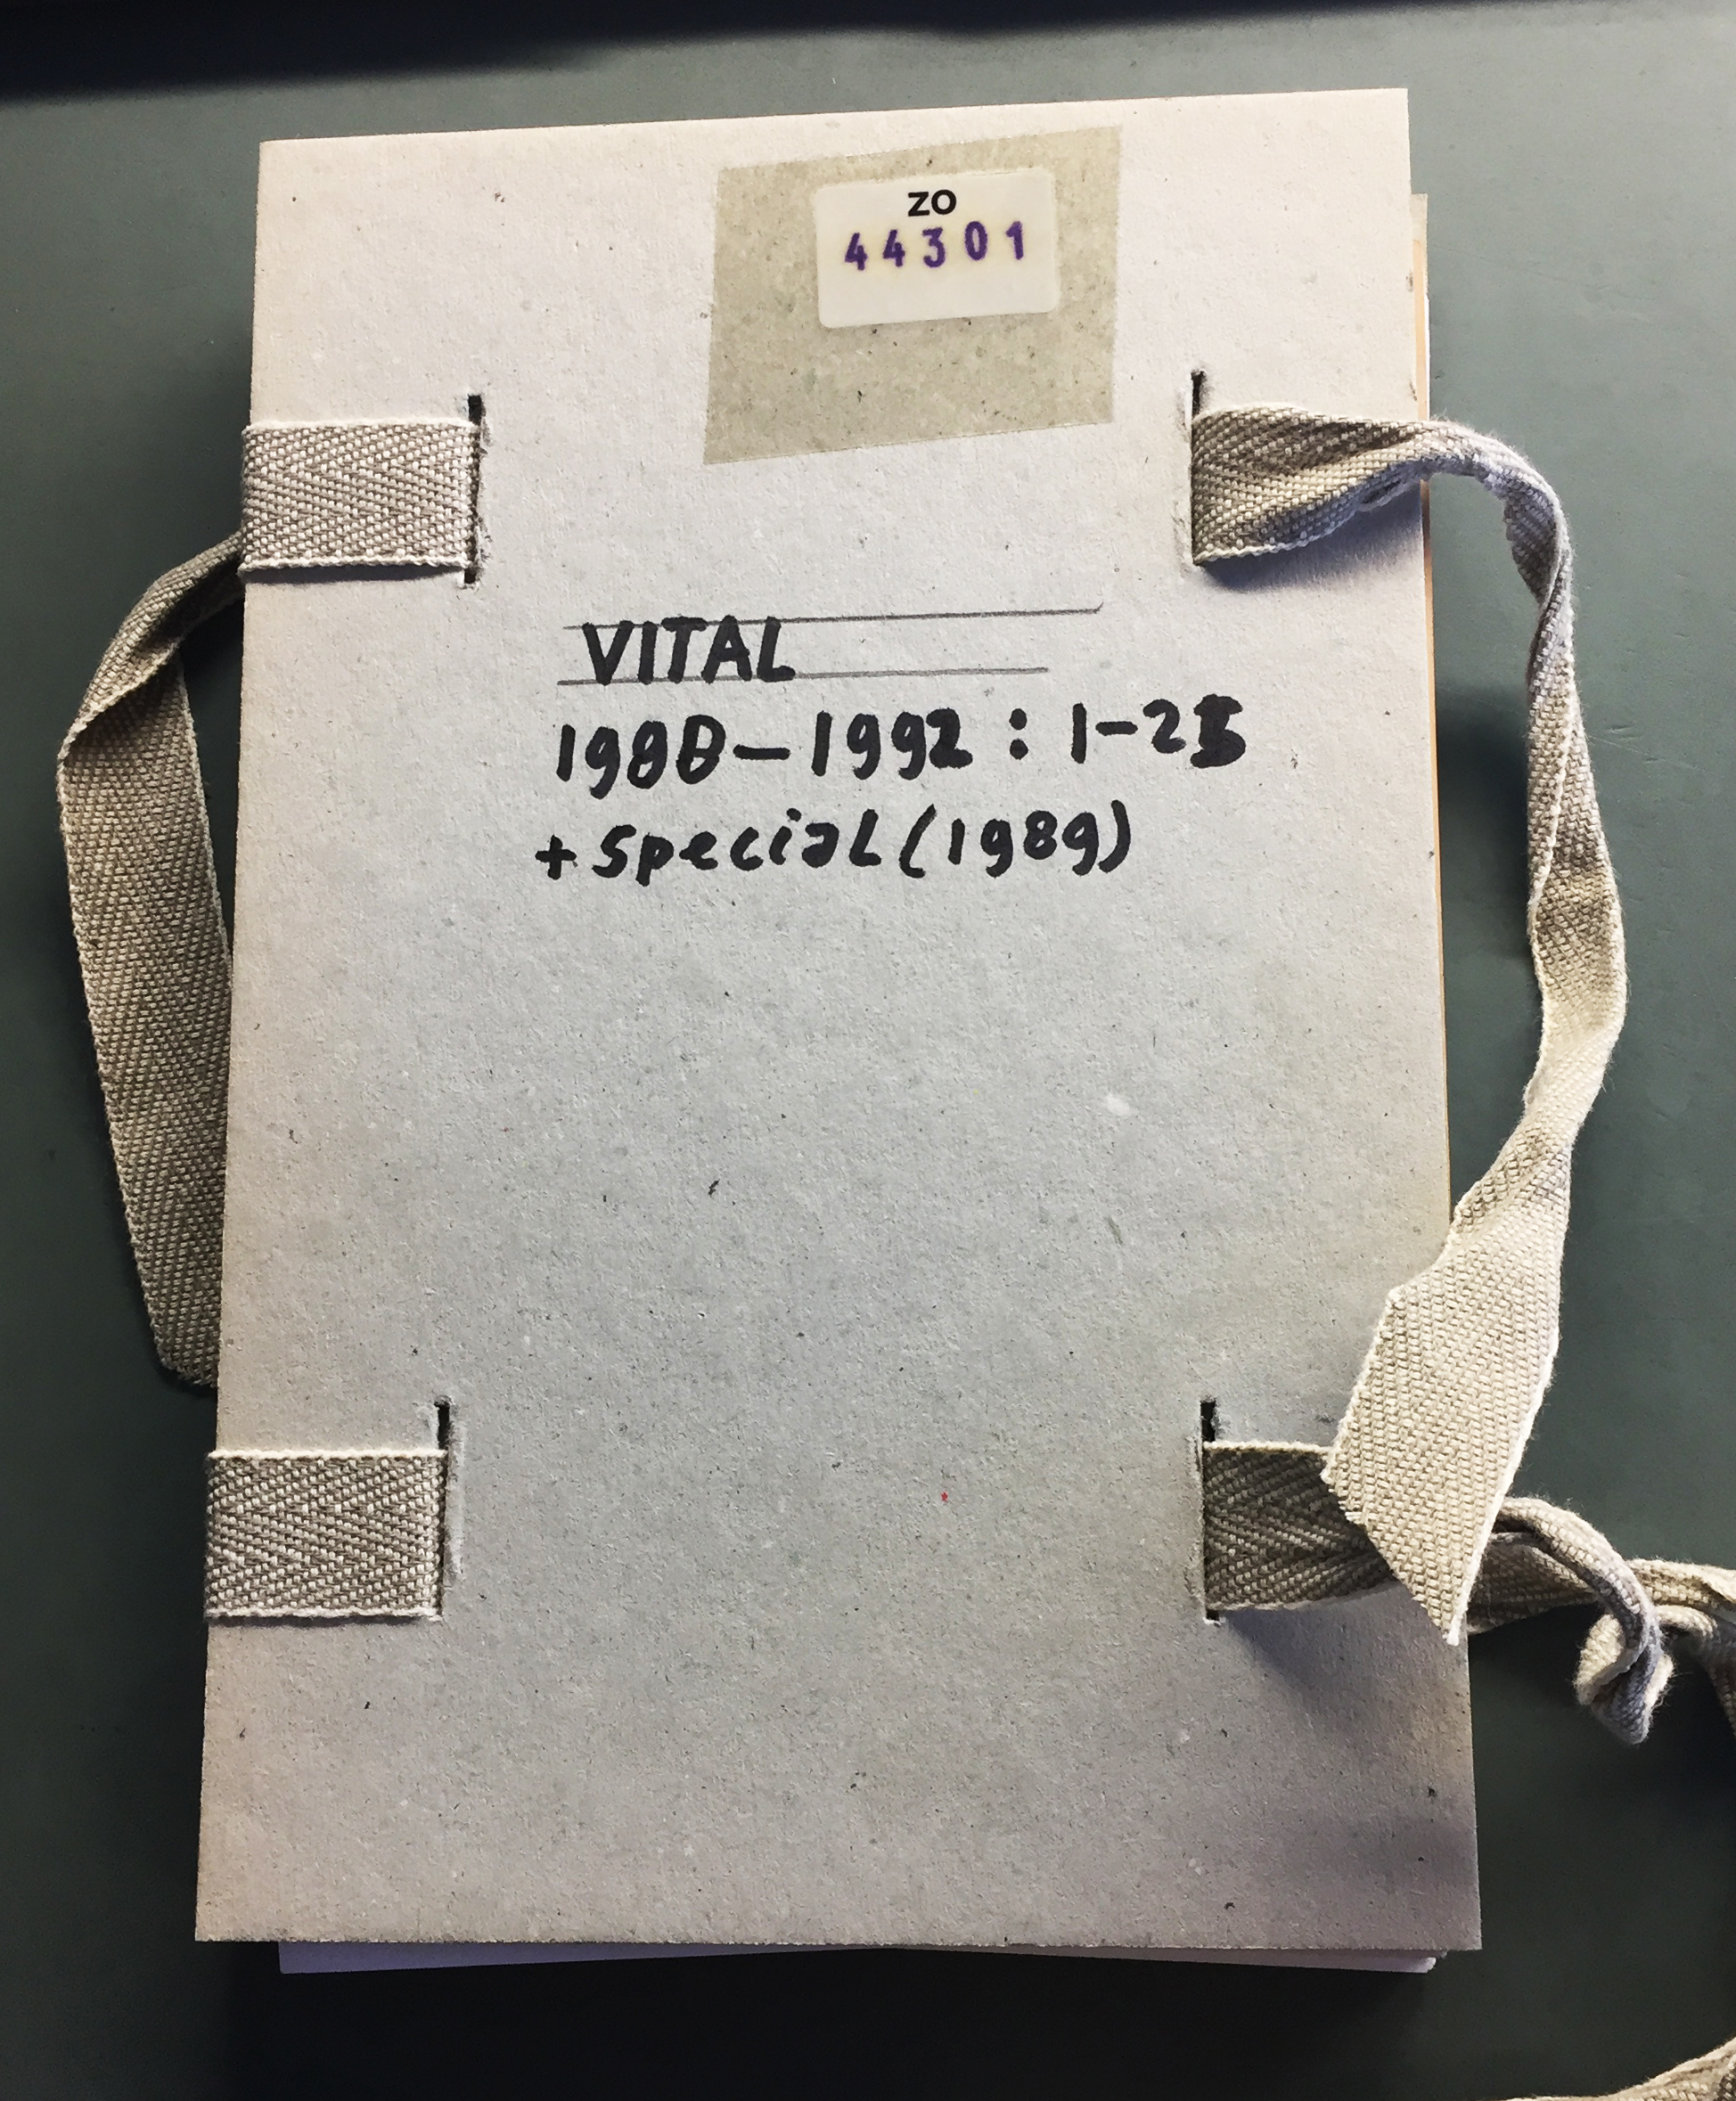 ZO
44301
VITAL
1988-1992 : 1-25
+ special (1989)